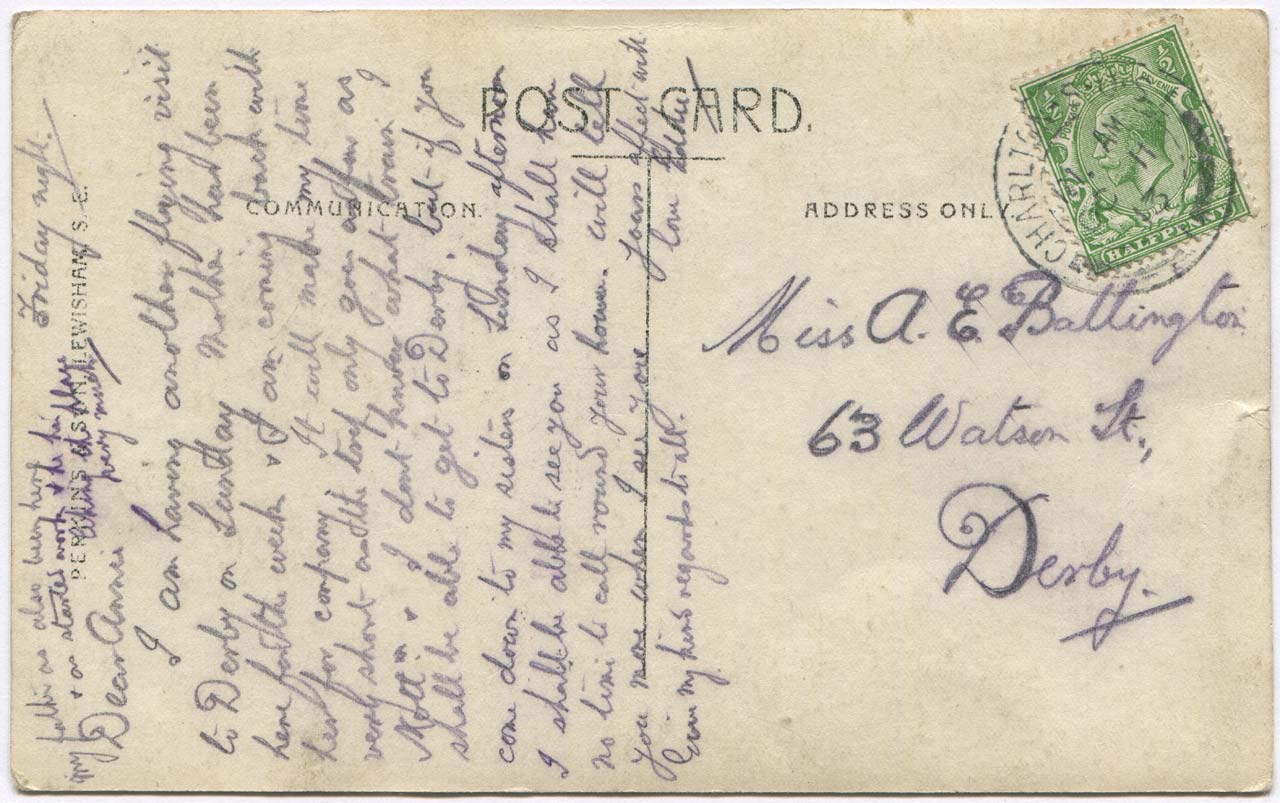 POST CARD.
COMMUNICATION.
ADDRESS ONLY
PERKINS & SON, LEWISHAM, S.E.
Friday night.
Dear Annie
I am having another flying visit
to Derby on Sunday Mother has been
here for the week & I am coming back with
her for company It will make my time
very short and the
I dont know what train I
shall be able to get to Derby. but if you
come down to my sisters on Sunday afternoon
I shall be able to see you as I shall have
no time to call round your house. will tell
you more when I see you Yours affect with
love
Give my kind regards to all.
my father as also been here
& as started work & he
very much
Miss A. E. Battington
63 Watson St.,
Derby.
CHARLTON
POSTAGE REVENUE
½ ½
HALFPENNY